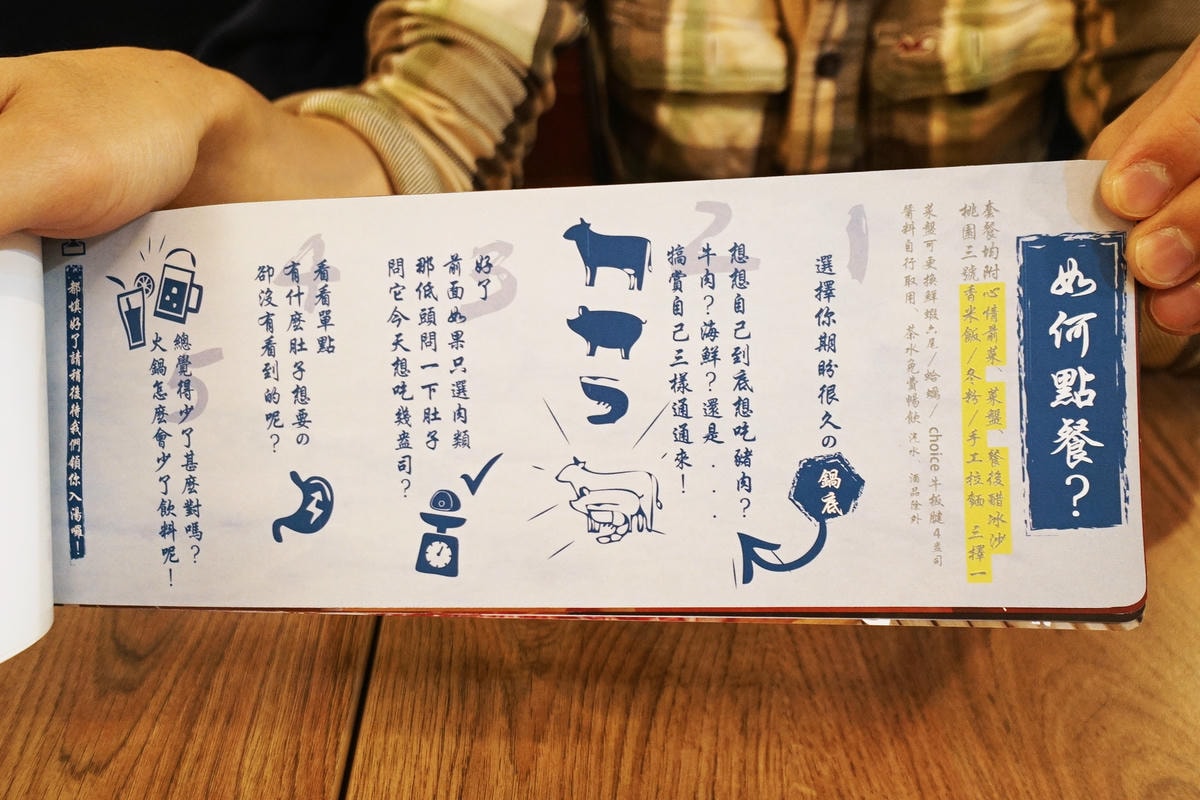 如何點餐？
套餐均附心情前菜、菜盤、餐後醋冰沙
桃園三號香米飯/冬粉/手工拉麵 三擇一
菜盤可更換鮮蝦六尾/蛤蠣/choice牛板腱4盎司
醬料自行取用、茶水免費暢飲 汽水、酒品除外
1
選擇你期盼很久の
鍋底
2
想想自己到底想吃豬肉？
牛肉？海鮮？還是...
犒賞自己三樣通通來！
3
好了
前面如果只選肉類
那低頭問一下肚子
問它今天想吃幾盎司？
4
看看單點
有什麼肚子想要の
卻沒有看到的呢？
5
總覺得少了甚麼對嗎？
火鍋怎麼會少了飲料呢！
都填好了請稍後待我們領你入湯囉！